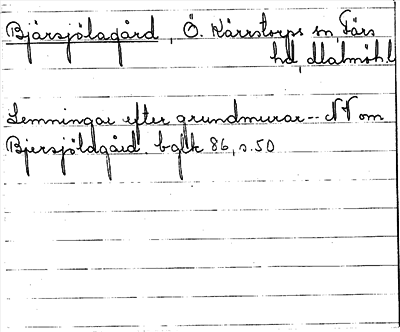 Bjärsjölagård, Ö. Kärrstorps sn Färs
hd, Malmöh.l
Lemningar efter grundmurar -- NV om
Bjersjölagård. bglk 86, s. 50